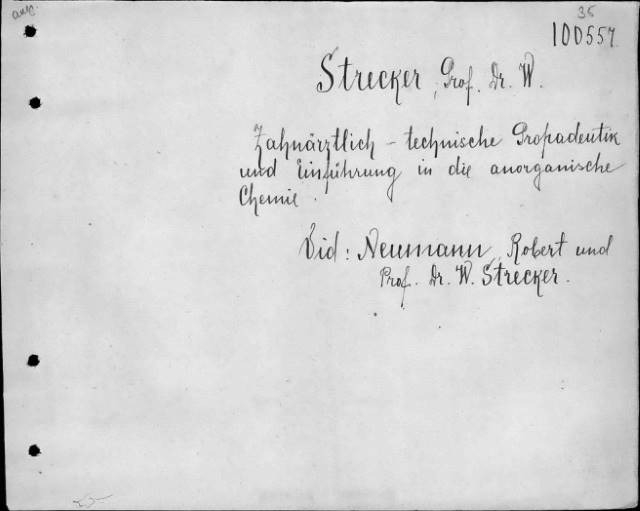 ang.
35
100557
Strecker, Prof. Dr. W.
Zahnärztlich - technische Propadeutik
und Einführung in die anorganische
Chemie.
Vid: Neumann, Robert und
Prof. Dr. W. Strecker.